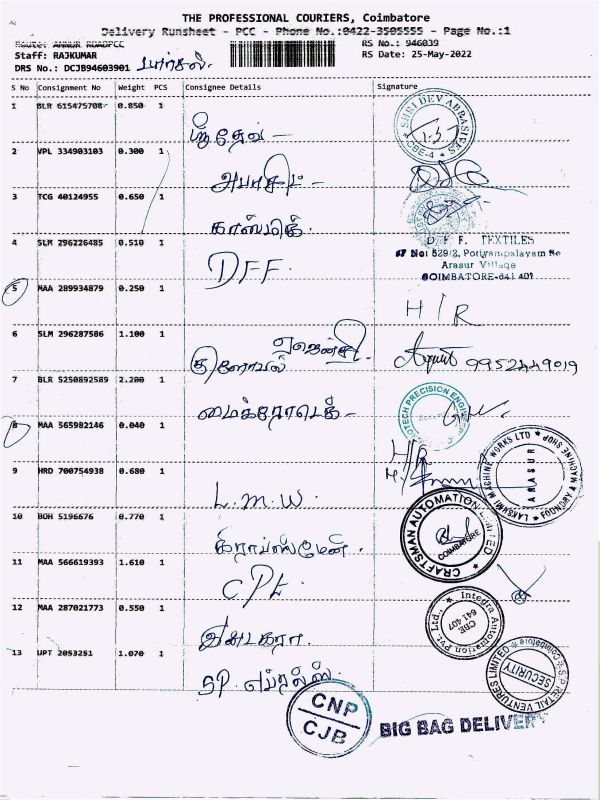 THE PROFESSIONAL COURIERS, Coimbatore
Delivery Runsheet - PCC - Phone No.:0422-3505555 - Page No.:1
Route: ANNUR ROADPCC RS No.: 946039
Staff: RAJKUMAR RS Date: 25-May-2022
DRS No.: DCJB94603901 பார்சல்.
S No Consignment No Weight PCS Consignee Details Signature
1 BLR 615475708 0.850 1 ஸ்ரீதேவ் - SHRI DEV ABRASIVES CBE-4
2 VPL 334903103 0.300 1
3 TCG 40124955 0.650 1 காஸ்மிக்.
4 SLM 296226485 0.510 1 DFF. D. F. F. TEXTILES
Arasur Village
COIMBATORE-641 407
5 MAA 289934879 0.250 1 H/R
6 SLM 296287586 1.100 1 குளோபல் ஏஜென்சி. 9952449019
7 BLR 5250892589 2.200 1 மைக்ரோடெக் - PRECISION
8 MAA 565982146 0.040 1 H/R
9 HRD 700754938 0.680 1 L.M.W. LAKSHMI MACHINE WORKS LTD FOUNDRY & MACHINE SHOP ARASUR
10 BOH 5196676 0.770 1 கிராப்ஸ்மேன். CRAFTSMAN AUTOMATION LIMITED COIMBATORE
11 MAA 566619393 1.610 1
12 MAA 287021773 0.550 1 இன்டகரா. Integra Automation Pvt. Ltd., CBE 641 407
13 UPT 2053251 1.070 1 SP. RETAIL VENTURES LIMITED SECURITY
CNP
CJB
BIG BAG DELIVERY